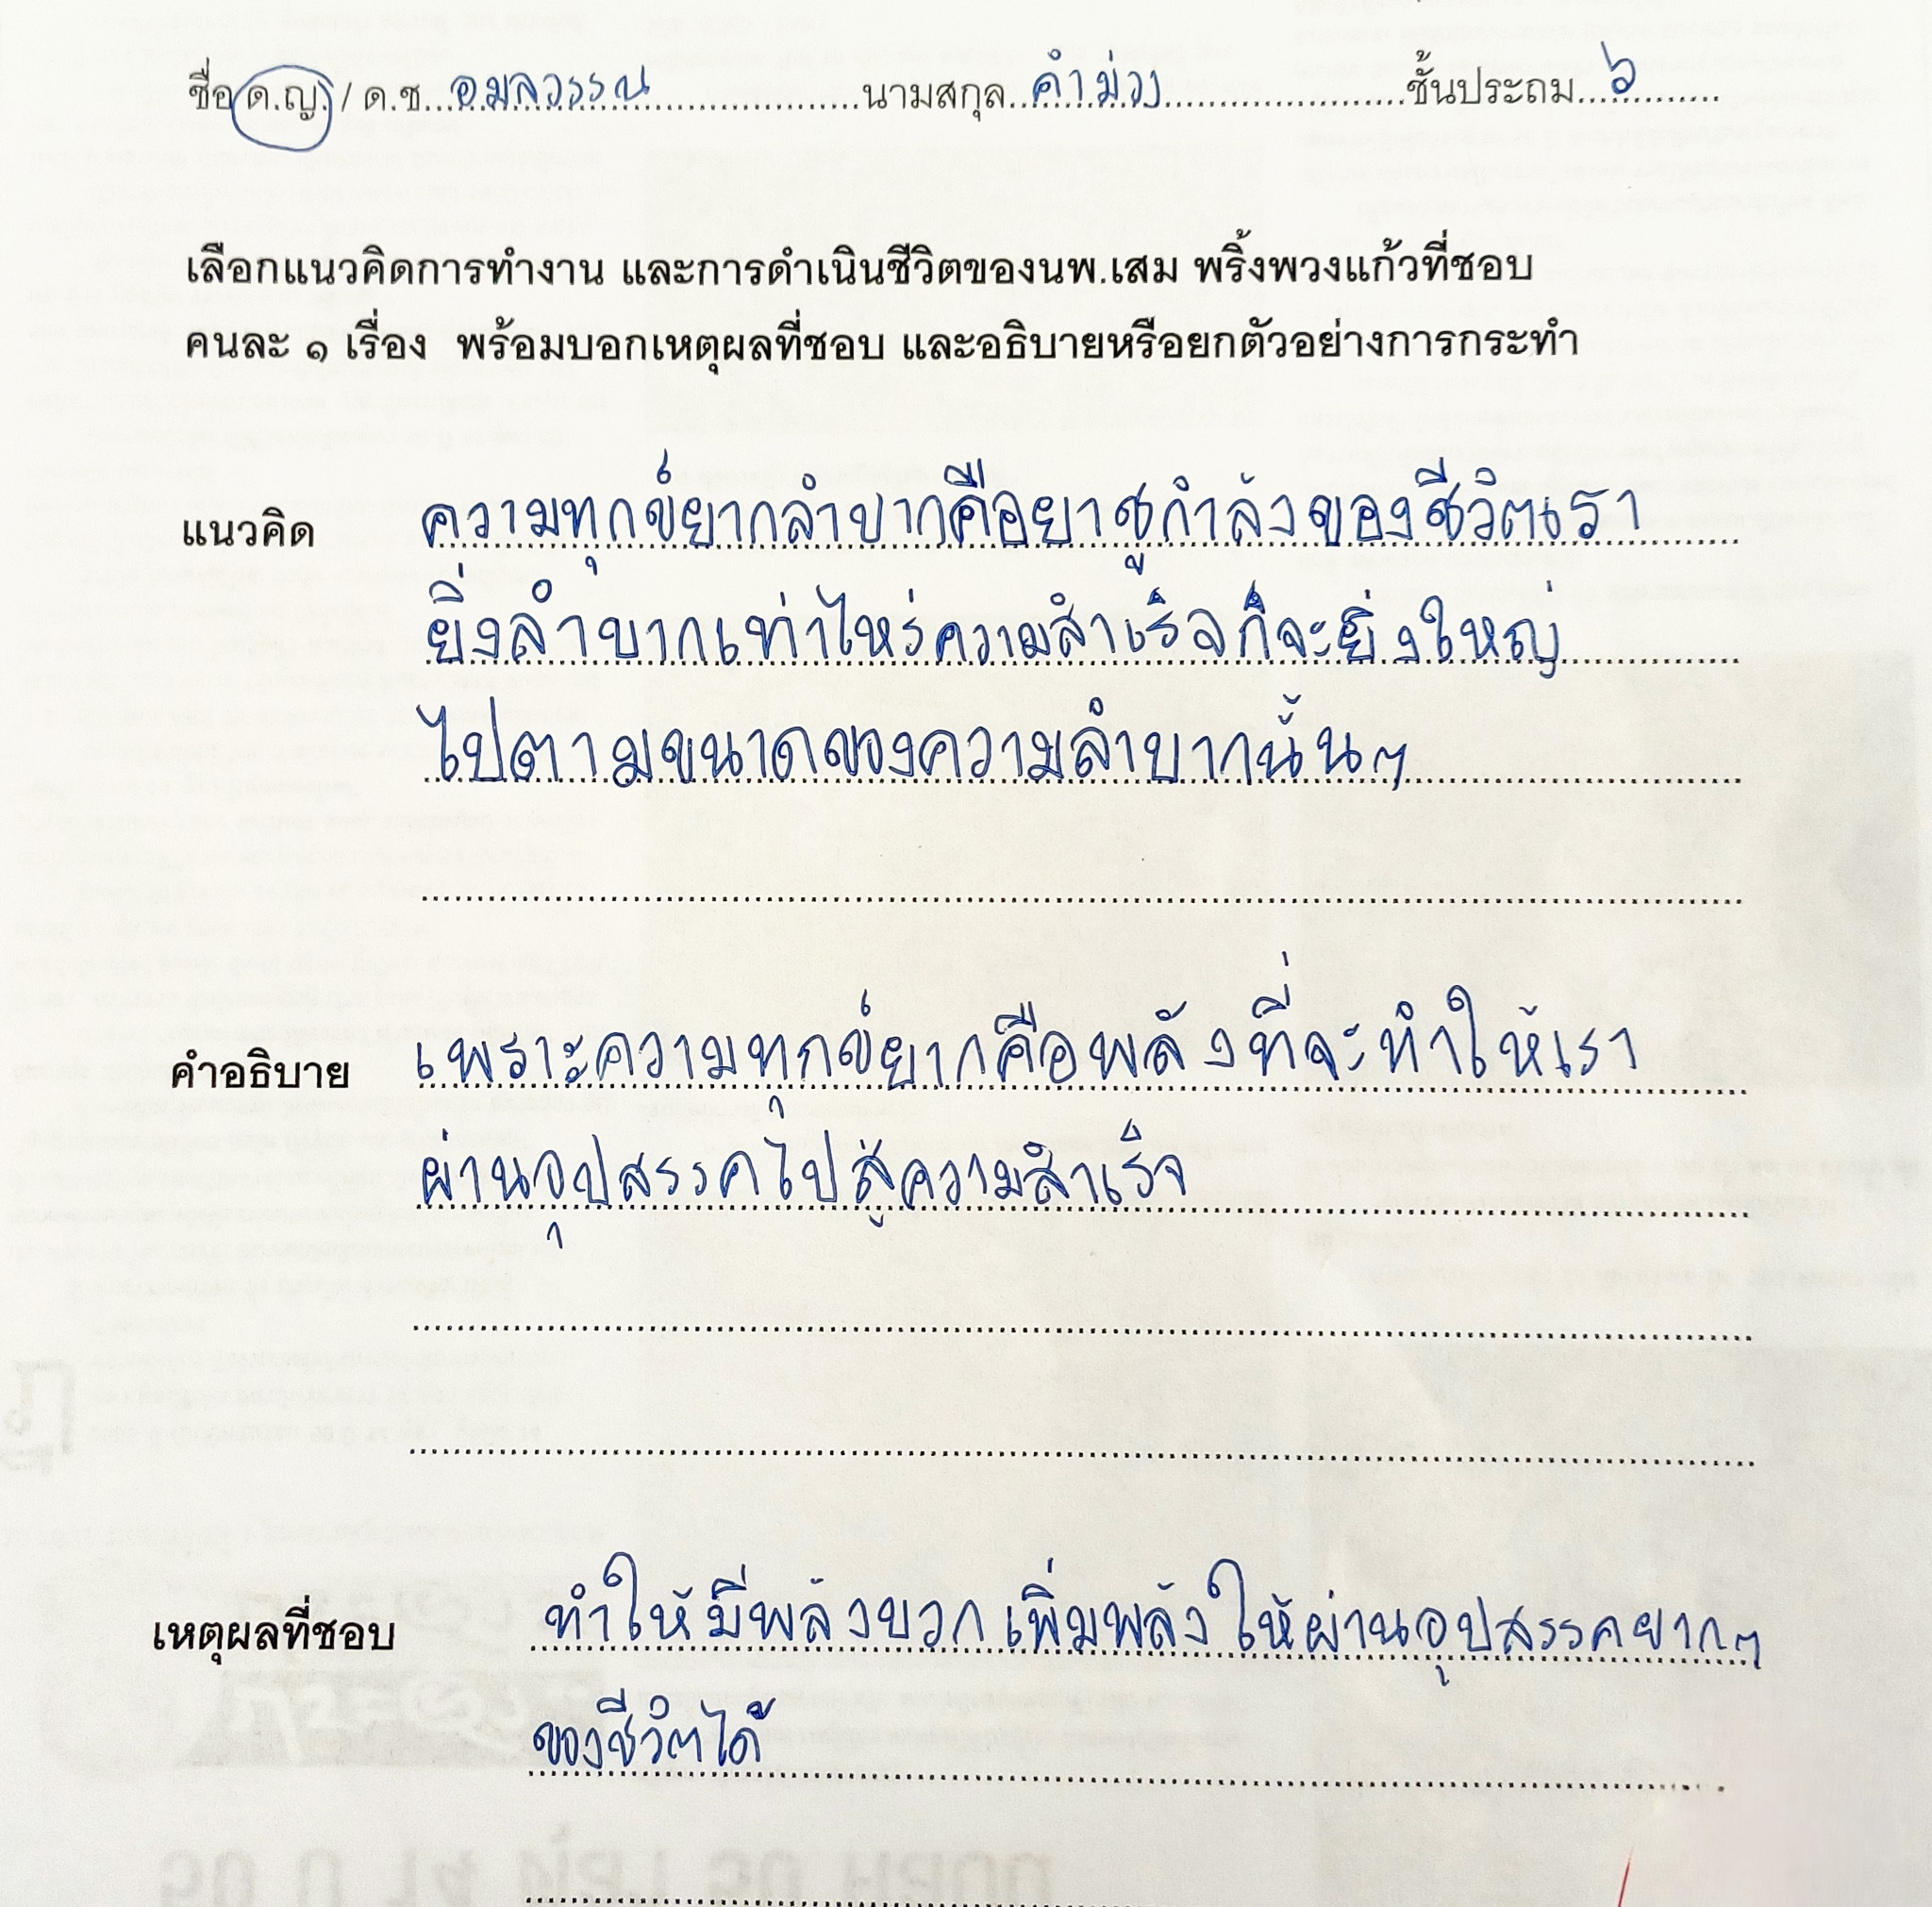 ชื่อ ด.ญ. / ด.ช. อมลวรรณ นามสกุล คำม่วง ชั้นประถม ๖
เลือกแนวคิดการทำงาน และการดำเนินชีวิตของนพ.เสม พริ้งพวงแก้วที่ชอบ
คนละ ๑ เรื่อง พร้อมบอกเหตุผลที่ชอบ และอธิบายหรือยกตัวอย่างการกระทำ
แนวคิด ความทุกข์ยากลำบากคือยาชูกำลังของชีวิตเรา
ยิ่งลำบากเท่าไหร่ความสำเร็จก็จะยิ่งใหญ่
ไปตามขนาดของความลำบากนั้นๆ
คำอธิบาย เพราะความทุกข์ยากคือพลังที่จะทำให้เรา
ผ่านอุปสรรคไปสู่ความสำเร็จ
เหตุผลที่ชอบ ทำให้มีพลังบวก เพิ่มพลังให้ผ่านอุปสรรคยากๆ
ของชีวิตได้